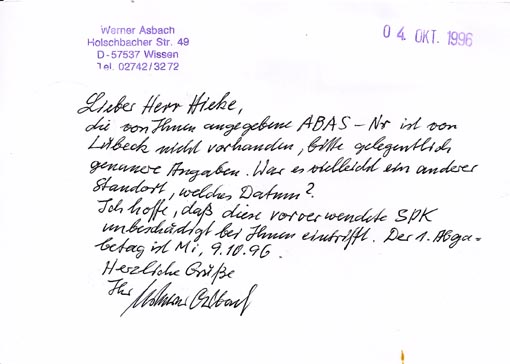 Werner Asbach
Holschbacher Str. 49
D-57537 Wissen
Tel. 02742/3272
04. OKT. 1996
Lieber Herr Hicke,
die von Ihnen angegebene ABAS-Nr ist von
Lübeck nicht vorhanden, bitte gelegentlich
genauere Angaben. War es vielleicht ein anderer
Standort, welches Datum?
Ich hoffe, daß diese vorverwendete SPK
unbeschädigt bei Ihnen eintrifft. Der 1. Abga-
betag ist Mi, 9.10.96.
Herzliche Grüße
Ihr Werner Asbach